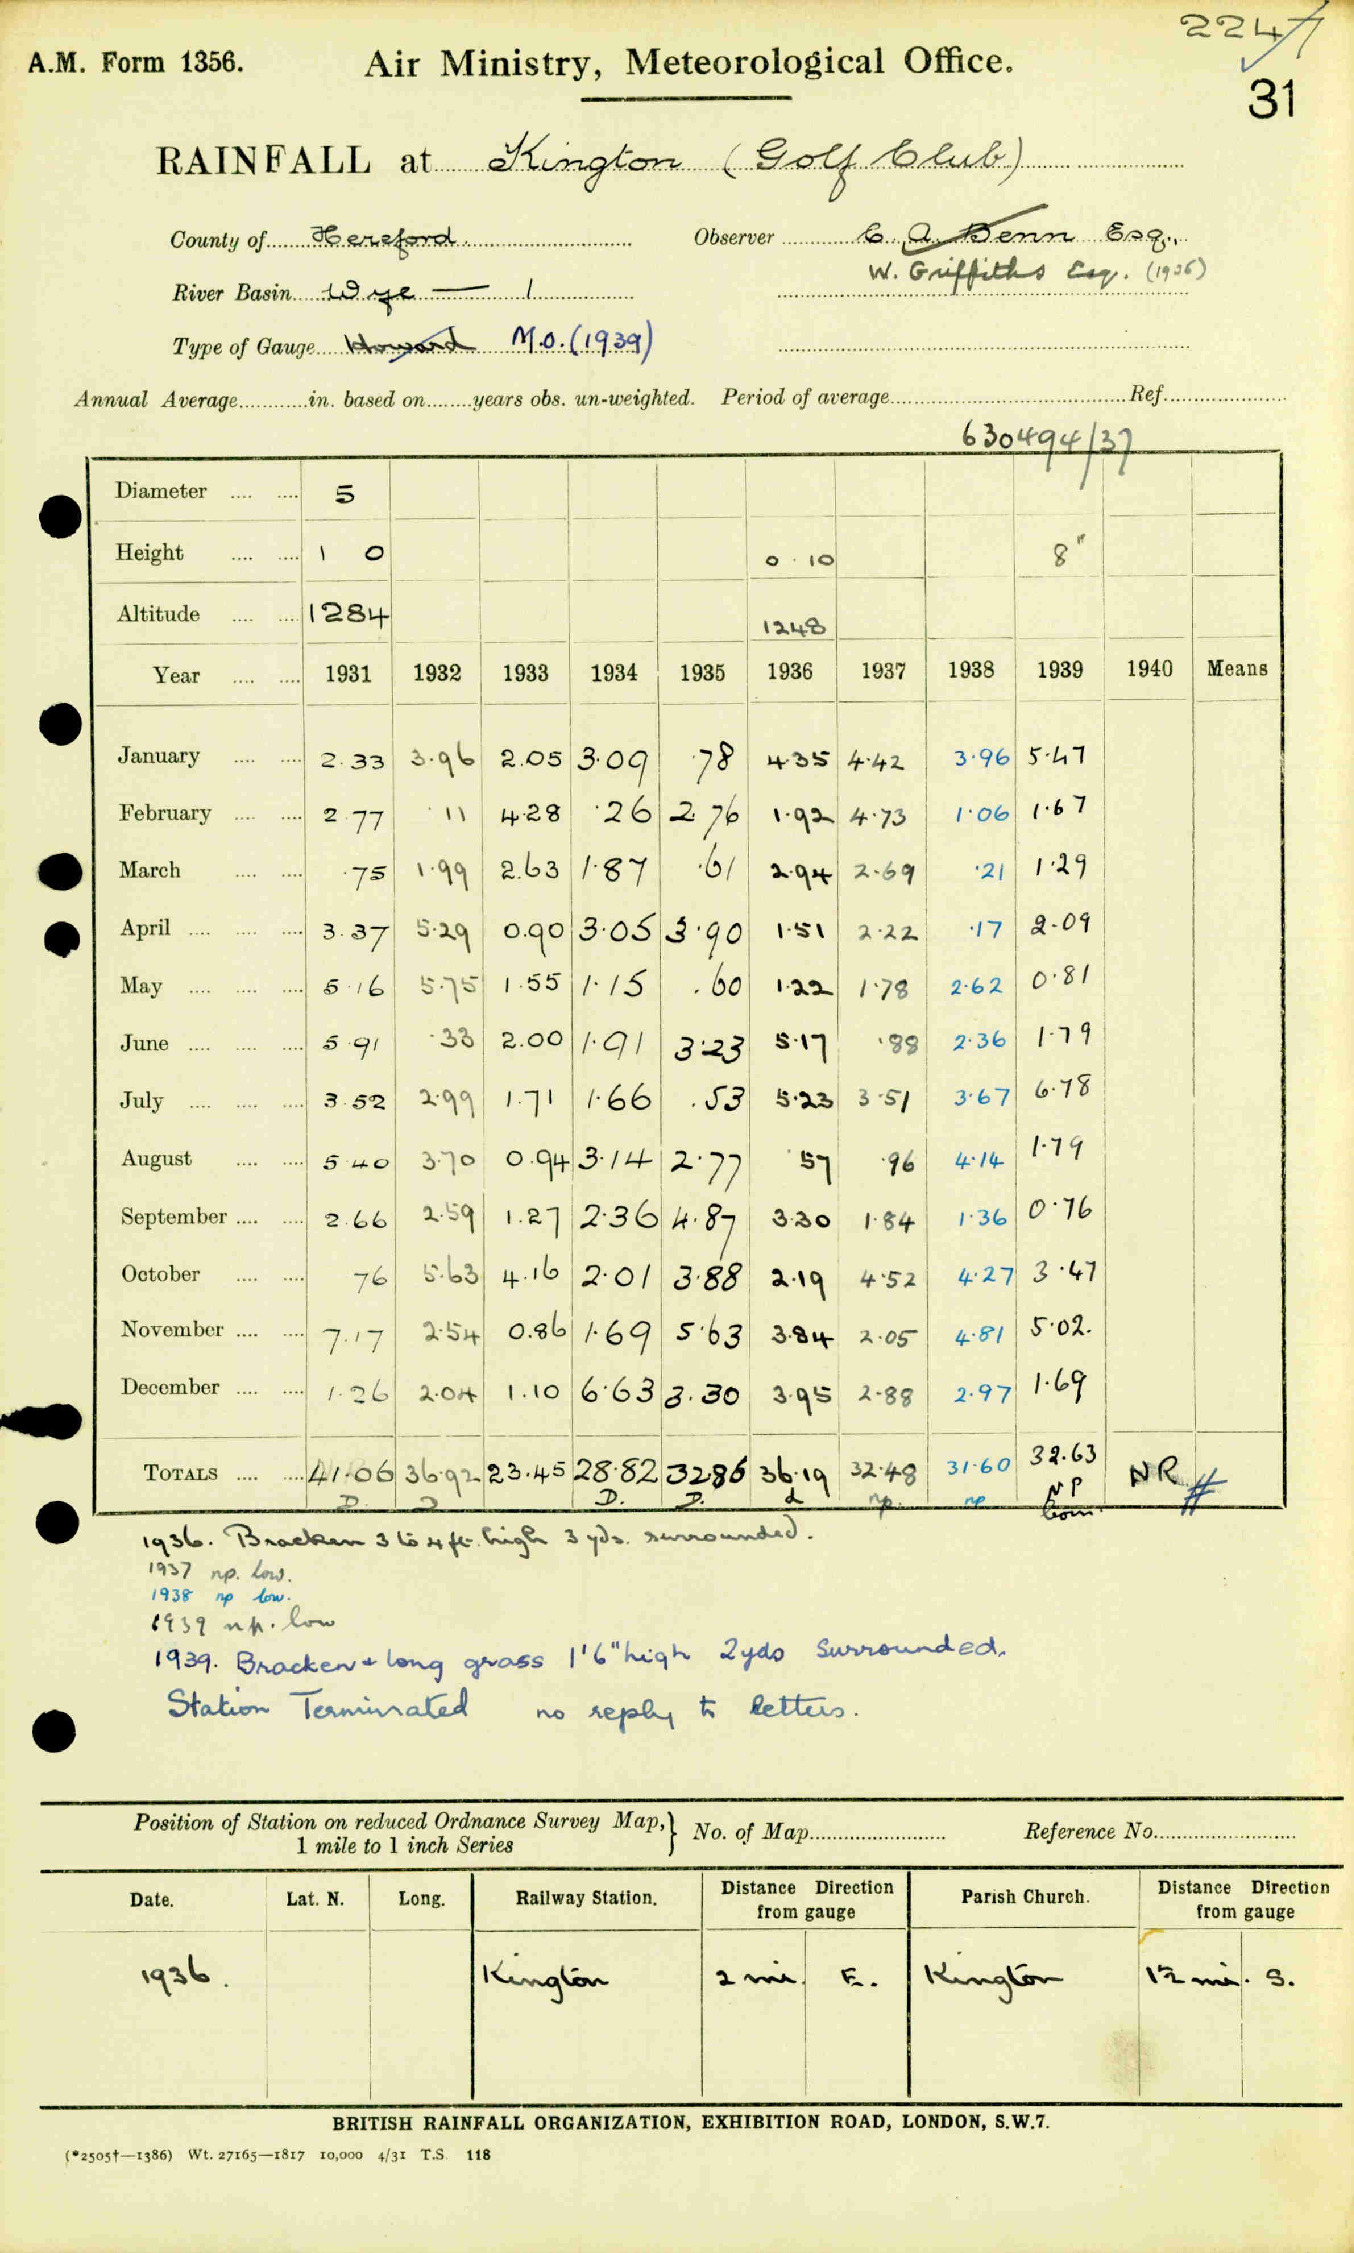 2247
A.M. Form 1356.
Air Ministry, Meteorological Office.
31
RAINFALL at Kington (Golf Club)
County of Hereford Observer C. A. Benn Esq.,
W. Griffiths Esq. (1936)
River Basin Wye — 1
Type of Gauge Howard M.O. (1939)
Annual Average in. based on years obs. un-weighted. Period of average Ref.
630494/37
Diameter 5
Height 1 0 0 10 8"
Altitude 1284 1248
Year 1931 1932 1933 1934 1935 1936 1937 1938 1939 1940 Means
January 2.33 3.96 2.05 3.09 .78 4.35 4.42 3.96 5.47
February 2.77 .11 4.28 .26 2.76 1.92 4.73 1.06 1.67
March .75 1.99 2.63 1.87 .61 2.94 2.69 .21 1.29
April 3.37 5.29 0.90 3.05 3.90 1.51 2.22 .17 2.09
May 5.16 5.75 1.55 1.15 .60 1.22 1.78 2.62 0.81
June 5.91 .33 2.00 1.91 3.23 5.17 .88 2.36 1.79
July 3.52 2.99 1.71 1.66 .53 5.23 3.51 3.67 6.78
August 5.40 3.70 0.94 3.14 2.77 .57 .96 4.14 1.79
September 2.66 2.59 1.27 2.36 4.87 3.30 1.84 1.36 0.76
October 76 5.63 4.16 2.01 3.88 2.19 4.52 4.27 3.47
November 7.17 2.54 0.86 1.69 5.63 3.84 2.05 4.81 5.02.
December 1.26 2.04 1.10 6.63 3.30 3.95 2.88 2.97 1.69
TOTALS 41.06 36.92 23.45 28.82 32.86 36.19 32.48 31.60 32.63 NR #
D. D D. D. d np. np NP
1936. Bracken 3 to 4 ft. high 3 yds. surrounded.
1937 np. low.
1938 np low.
1939 n.p. low
1939. Bracken + long grass 1'6" high 2yds surrounded.
Station Terminated no reply to letters.
Position of Station on reduced Ordnance Survey Map, 1 mile to 1 inch Series } No. of Map Reference No.
Date. Lat. N. Long. Railway Station. Distance Direction from gauge Parish Church. Distance Direction from gauge
1936. Kington 2 mi. E. Kington 1½ mi. S.
BRITISH RAINFALL ORGANIZATION, EXHIBITION ROAD, LONDON, S.W.7.
(*2505†—1386) Wt. 27165—1817 10,000 4/31 T.S. 118